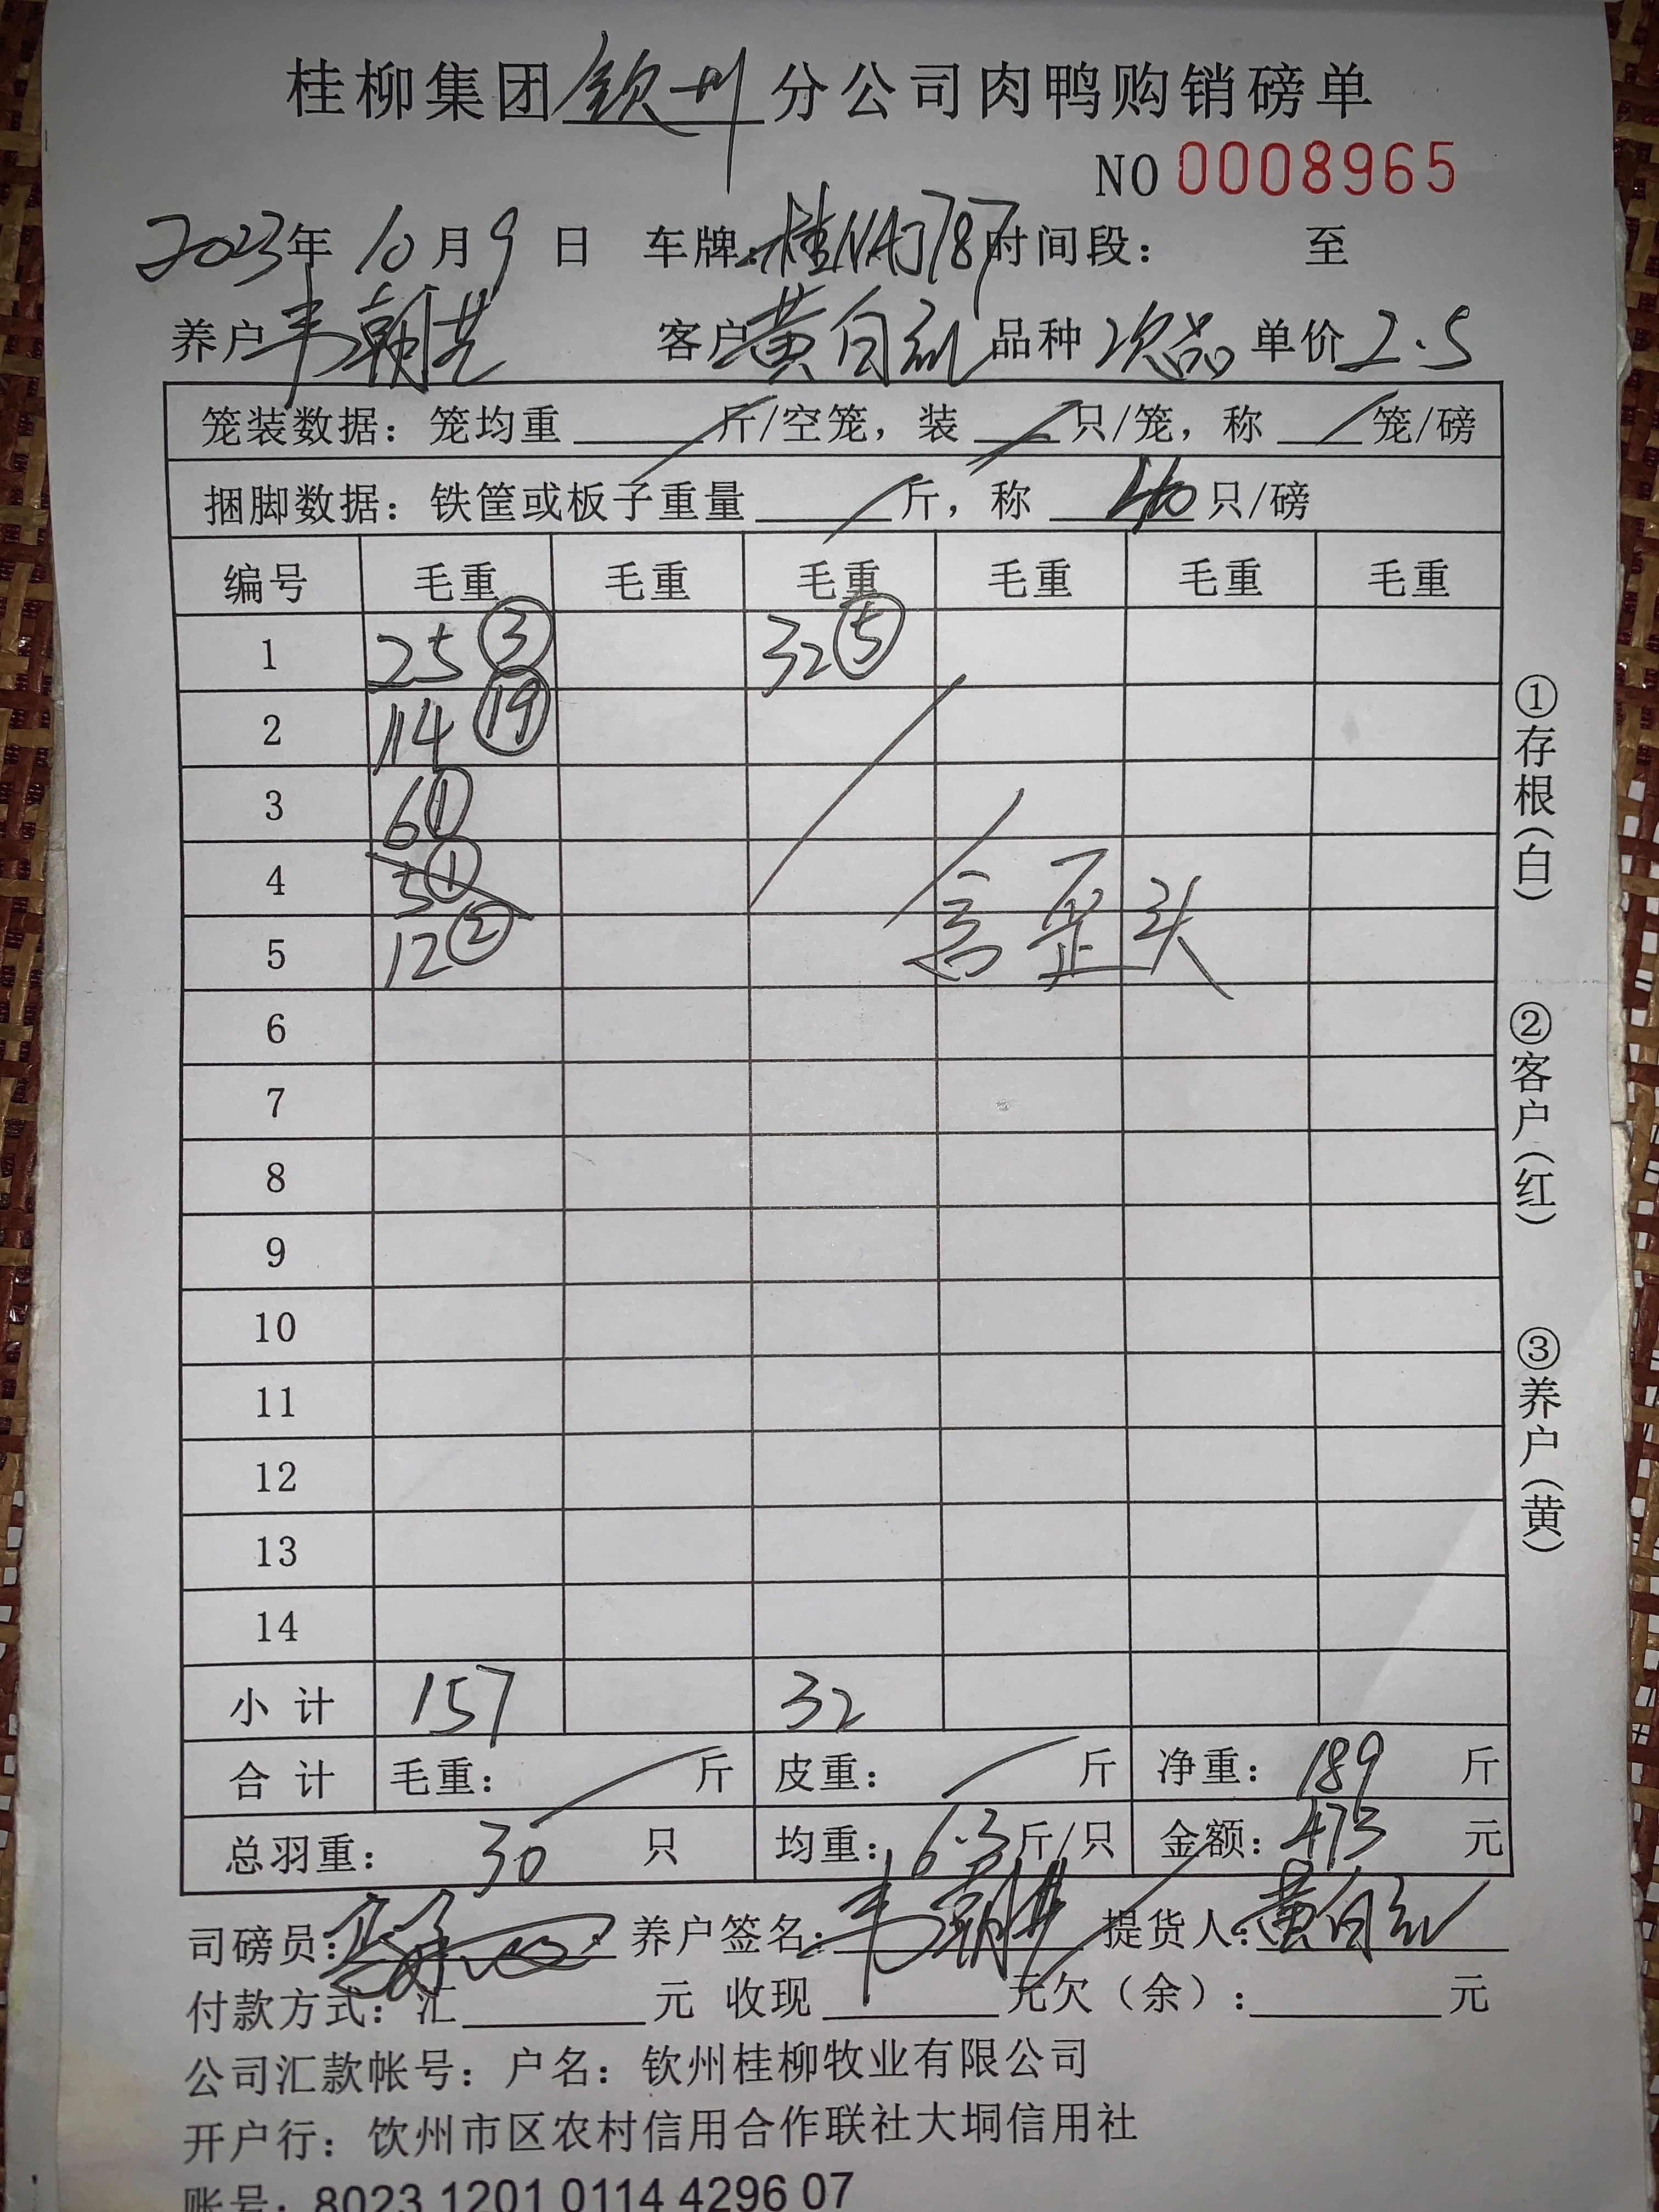 桂柳集团钦州分公司肉鸭购销磅单
NO 0008965
2023年10月9日 车牌:桂NAJ787时间段: 至
养户韦朝芝 客户黄自 品种次品 单价2.5
笼装数据:笼均重 斤/空笼,装 只/笼,称 笼/磅
捆脚数据:铁筐或板子重量 斤,称 40只/磅
编号 毛重 毛重 毛重 毛重 毛重 毛重
1 25③ 32⑤
2 114⑲
3 6①
4 5①
5 12② 含歪头
6
7
8
9
10
11
12
13
14
小计 157 32
合计 毛重: 斤 皮重: 斤 净重:189斤
总羽重:30只 均重:6.3斤/只 金额:473元
司磅员: 养户签名:韦朝 提货人:黄自
付款方式:汇 元 收现 元欠(余): 元
公司汇款帐号:户名:钦州桂柳牧业有限公司
开户行:钦州市区农村信用合作联社大垌信用社
账号:8023 1201 0114 4296 07
①存根(白)
②客户(红)
③养户(黄)